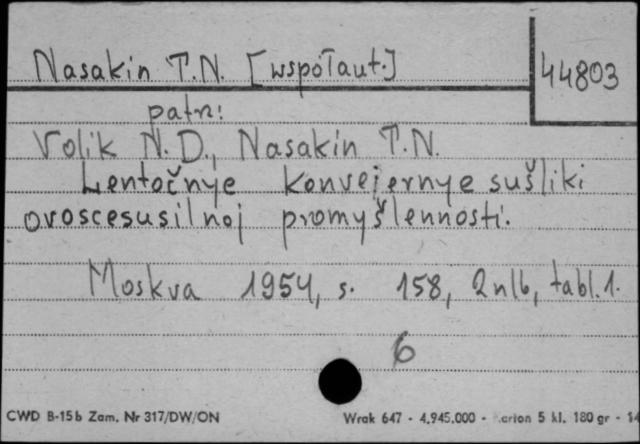 Nasakin T.N. [wspołaut.]
44803
patrz:
Volik N.D., Nasakin T.N.
Lentočnye konvejernye sušliki
ovoscesusilnoj promyšlennosti.
Moskva 1954, s. 158, 2nlb, tabl. 1.
6
CWD B-15b Zam. Nr 317/DW/ON
Wrak 647 - 4.945.000 - arton 5 kl. 180 gr - 14